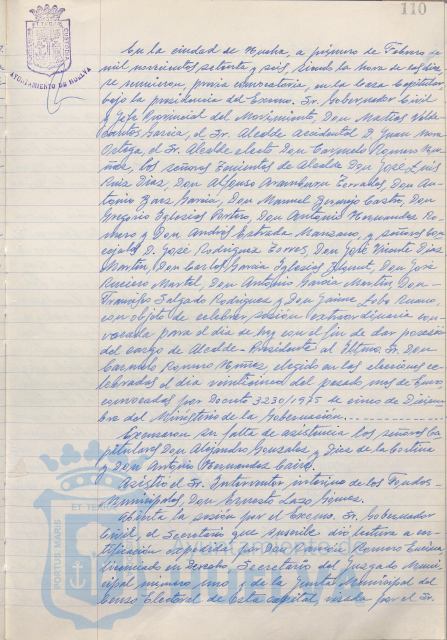 110
AYUNTAMIENTO DE HUELVA
En la ciudad de Huelva, a primero de Febrero de
mil novecientos setenta y seis, siendo la hora de las doce
se reunieron, previa convocatoria, en la Casa Capitular
bajo la presidencia del Excmo. Sr. Gobernador Civil
y Jefe Provincial del Movimiento, Don Matías Valde-
cantos García, el Sr. Alcalde accidental D. Juan Mora
Ortega, el Sr. Alcalde electo Don Carmelo Romero Nu-
ñez, los señores Tenientes de Alcalde Don José Luis
Ruiz Díaz, Don Alfonso Aramburu Terrades, Don An-
tonio García, Don Manuel Castro, Don
Gregorio Iglesias Don Antonio Hernandez Ro-
mero y Don Andrés Estrada Manzano, y señores Con-
cejales D. José Rodríguez Torres, Don José Vicente Díaz
Martín, Don Carlos García Iglesias Don José
Martel, Don Antonio García Martín, Don
Salgado Rodríguez y Don Jaime Lobo
con objeto de celebrar sesión extraordinaria con-
vocada para el día de hoy con el fin de dar posesión
del cargo de Alcalde-Presidente al Iltmo. Sr. Don
Carmelo Romero Núñez, elegido en las elecciones ce-
lebradas el día veinticinco del pasado mes de Enero,
convocadas por Decreto 3230/1975 de cinco de Diciem-
bre del Ministerio de la Gobernación.
Excusaron su falta de asistencia los señores Ca-
pitulares Don Alejandro Gonzalez y Diez de la Cortina
y Don Antonio Fernandez
Asistió el Sr. Interventor interino de los Fondos
Municipales, Don Ernesto Lazo
Abierta la sesión por el Excmo. Sr. Gobernador
Civil, el Secretario que suscribe dió lectura a cer-
tificación expedida por Don Romero
licenciado en Derecho, Secretario del Juzgado Muni-
cipal número uno y de la Junta Municipal del
Censo Electoral de esta capital, visada por el Sr.
PORTUS MARIS
ET TERRAE